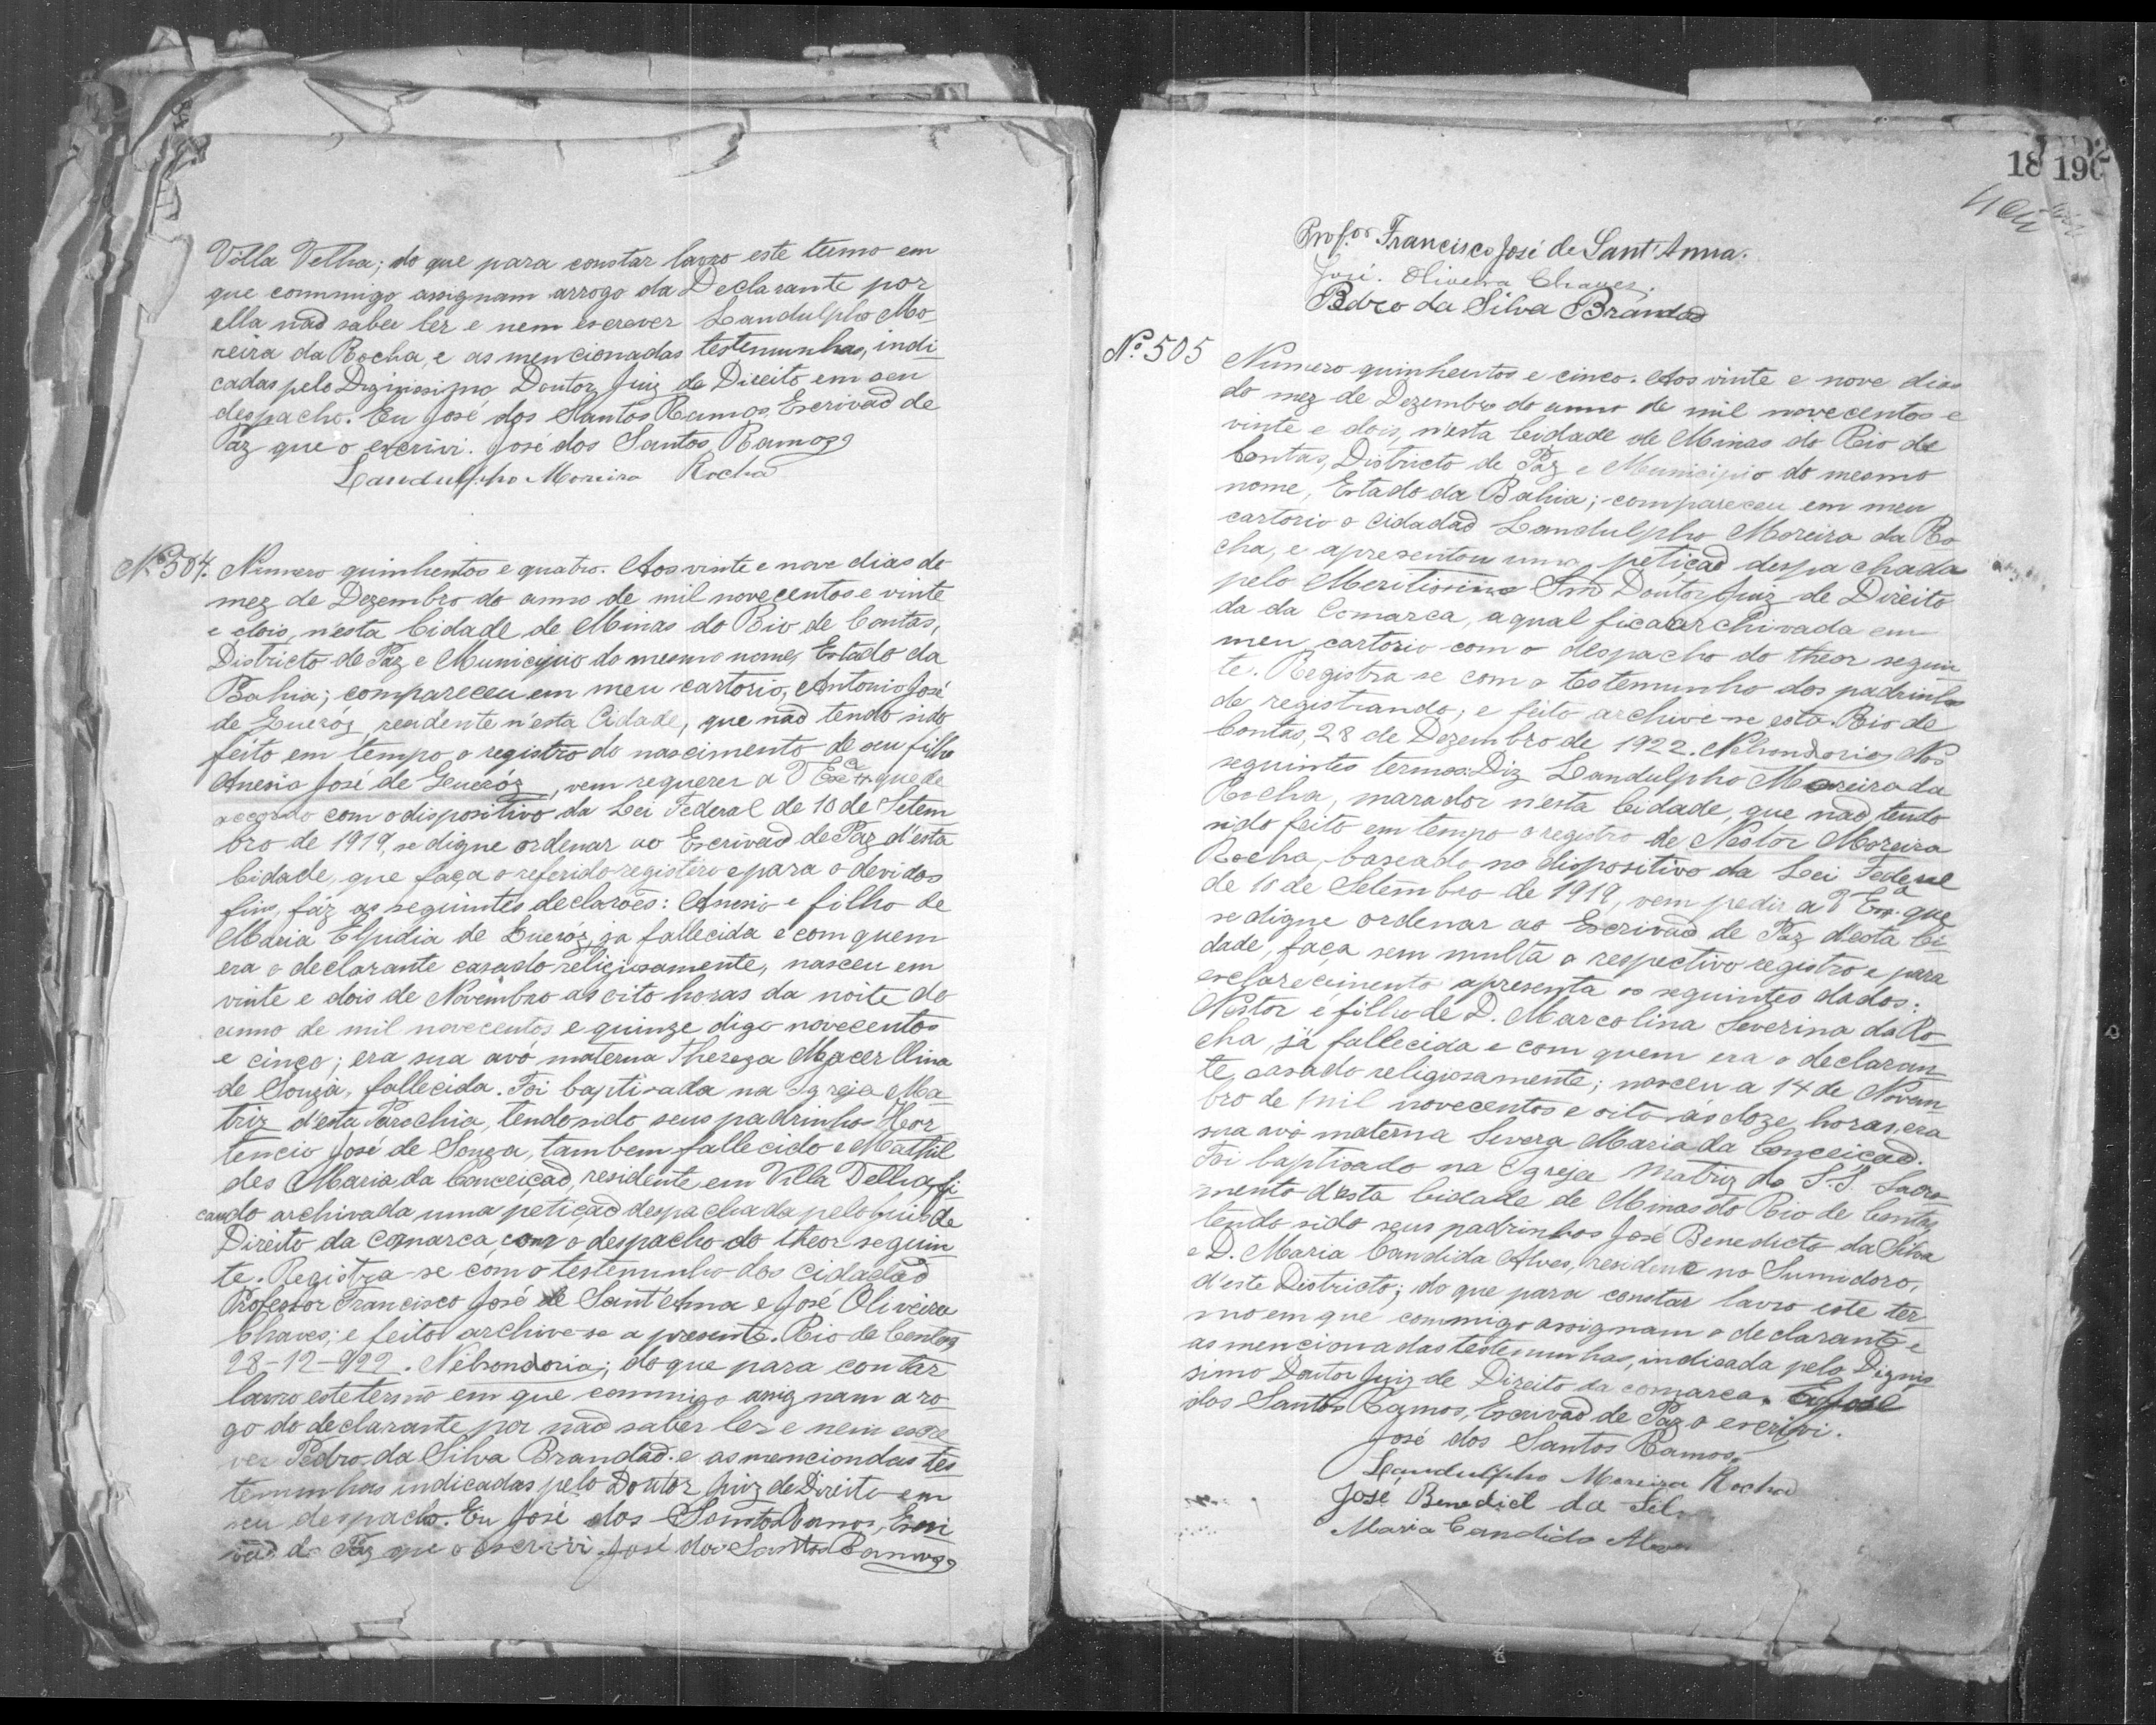 Villa Velha; do que para constar lavro este termo em
que commigo assignam arrogo da Declarante por
ella não saber ler e nem escrever Landulpho Mo-
reira da Rocha, e as mencionadas testemunhas, indi-
cadas pelo Dignissimo Doutor Juiz de Direito em seu
despacho. Eu José dos Santos Ramos, Escrivão de
Paz que o escrivi. José dos Santos Ramos
Landulpho Moreira Rocha
Nº 504. Numero quinhentos e quatro. Aos vinte e nove dias do
mez de Dezembro do anno de mil novecentos e vinte
e dois, n'esta Cidade de Minas do Rio de Contas,
Districto de Paz e Municipio do mesmo nome, Estado da
Bahia; compareceu em meu cartorio, Antonio José
de Queróz, residente n'esta Cidade, que não tendo sido
feito em tempo o registro do nascimento de seu filho
Anesio José de Queróz, vem requerer a V Exª que de
accordo com o dispositivo da Lei Federal de 10 de Setem
bro de 1919, se digne ordenar ao Escrivão de Paz d'esta
Cidade, que faça o referido registro e para o devidos
fins, fáz as seguintes declarões: Anesio e filho de
Maria Elpudia de Queróz, ja fallecida e com quem
era o declarante casado religiosamente, nasceu em
vinte e dois de Novembro as oito horas da noite do
anno de mil novecentos e quinze digo novecentos
e cinco; era sua avó materna Thereza
de Souza, fallecida. Foi baptisada na Igreja Ma-
triz d'esta Parochia, tendo sido seus padrinhos Hor
tencio José de Souza, tambem fallecido e Mathil
des Maria da Conceição, residente em Villa Velha, fi
cando archivada uma petição despachada pelo Juiz de
Direito da Comarca, com o despacho do theor seguin
te. Registra-se com o testemunho dos cidadão
Professor Francisco José de Sant'Anna e José Oliveira
Chaves; e feito archive-se a presente. Rio de Contas
28-12-922. Nelsondoria; do que para contar
lavro este termo em que commigo assignam a ro-
go do declarante por não saber ler e nem escre
ver Pedro da Silva Brandão. e as menciondas tes
temunhas indicadas pelo Doutor Juiz de Direito em
seu despacho. Eu José dos Santos Ramos, Escri
vão de Paz que o escrivi José dos Santos Ramos
18 190
Profor Francisco José de Sant'Anna.
José. Oliveira Chaves.
Pedro da Silva Brandão
Nº 505 Numero quinhentos e cinco. Aos vinte e nove dias
do mez de Dezembro do anno de mil novecentos e
vinte e dois, n'esta Cidade de Minas do Rio de
Contas, Districto de Paz e Municipio do mesmo
nome, Estado da Bahia; compareceu em meu
cartorio o Cidadão Landulpho Moreira da Ro
cha, e apresentou uma petição despachada
pelo Meritissimo Snr Doutor Juiz de Direito
da da Comarca, aqual fica archivada em
meu cartorio com o despacho do theor seguin
te. Registra-se com o testemunho dos padrinhos
do registrando; e feito archive-se esta. Rio de
Contas, 28 de Dezembro de 1922. Nelsondoria, Nos
seguintes termos: Diz Landulpho Moreira da
Rocha, marador n'esta Cidade, que não tendo
sido feito em tempo o registro de Nestor Moreira
Rocha, baseado no dispositivo da Lei Federal
de 10 de Setembro de 1919, vem pedir a V Exª que
se digne ordenar ao Escrivão de Paz d'esta Ci-
dade, faça sem multa o respectivo registro e para
esclarecimento apresenta os seguintes dados:
Nestor é filho de D. Marcolina Severina da Ro-
cha, já fallecida e com quem era o declaran-
te casado religiosamente; nasceu a 14 de Novem
bro de mil novecentos e oito ás doze horas, era
sua avó materna Severa Maria da Conceição.
Foi baptisado na Igreja Matriz do S.S. Sacra
mento d'esta Cidade de Minas do Rio de Contas,
tendo sido seus padrinhos José Benedicto da Silva
e D. Maria Candida Alves, no Sumidoro,
d'este Districto; do que para constar lavro este ter
mo em que commigo assignam o declarante e
as mencionadas testemunhas, indicada pelo Dignis
simo Doutor Juiz de Direito da comarca. Eu José
dos Santos Ramos, Escrivão de Paz o escrivi.
José dos Santos Ramos.
Landulpho Moreira Rocha
José Benedict da Sil
Maria Candida Alves